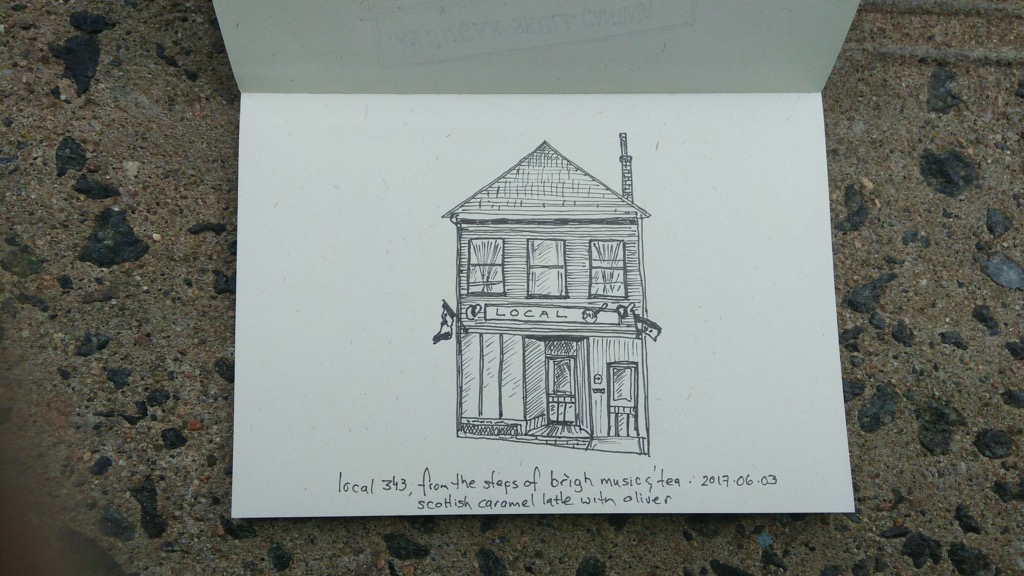 SUGAR SKULL CANTINA
LOCAL
local 343, from the steps of brigh music & tea. 2017.06.03
scottish caramel latte with oliver